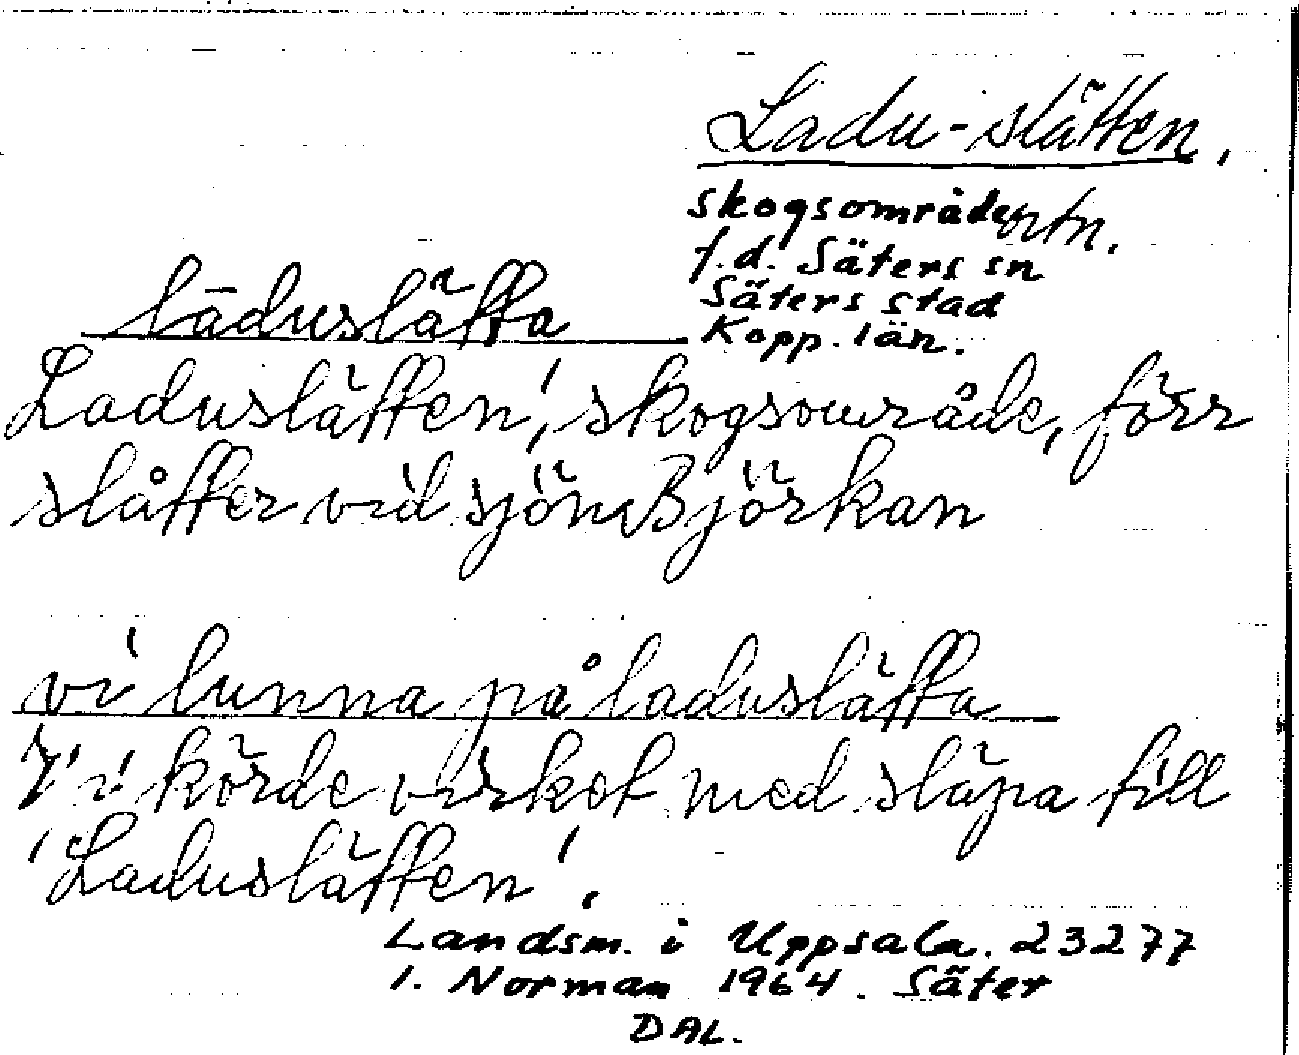 Ladu-slätten.
skogsområde ortn.
f.d. Säters sn
Säters stad
Kopp. län.
lāduslätta
Laduslätten', skogsområde, förr
slåtter vid sjön Björkan
vi lunna på laduslätta
Vi körde virket med släpa till
'Laduslätten'.
Landsm. i Uppsala. 23277
I. Norman 1964. Säter
DAL.